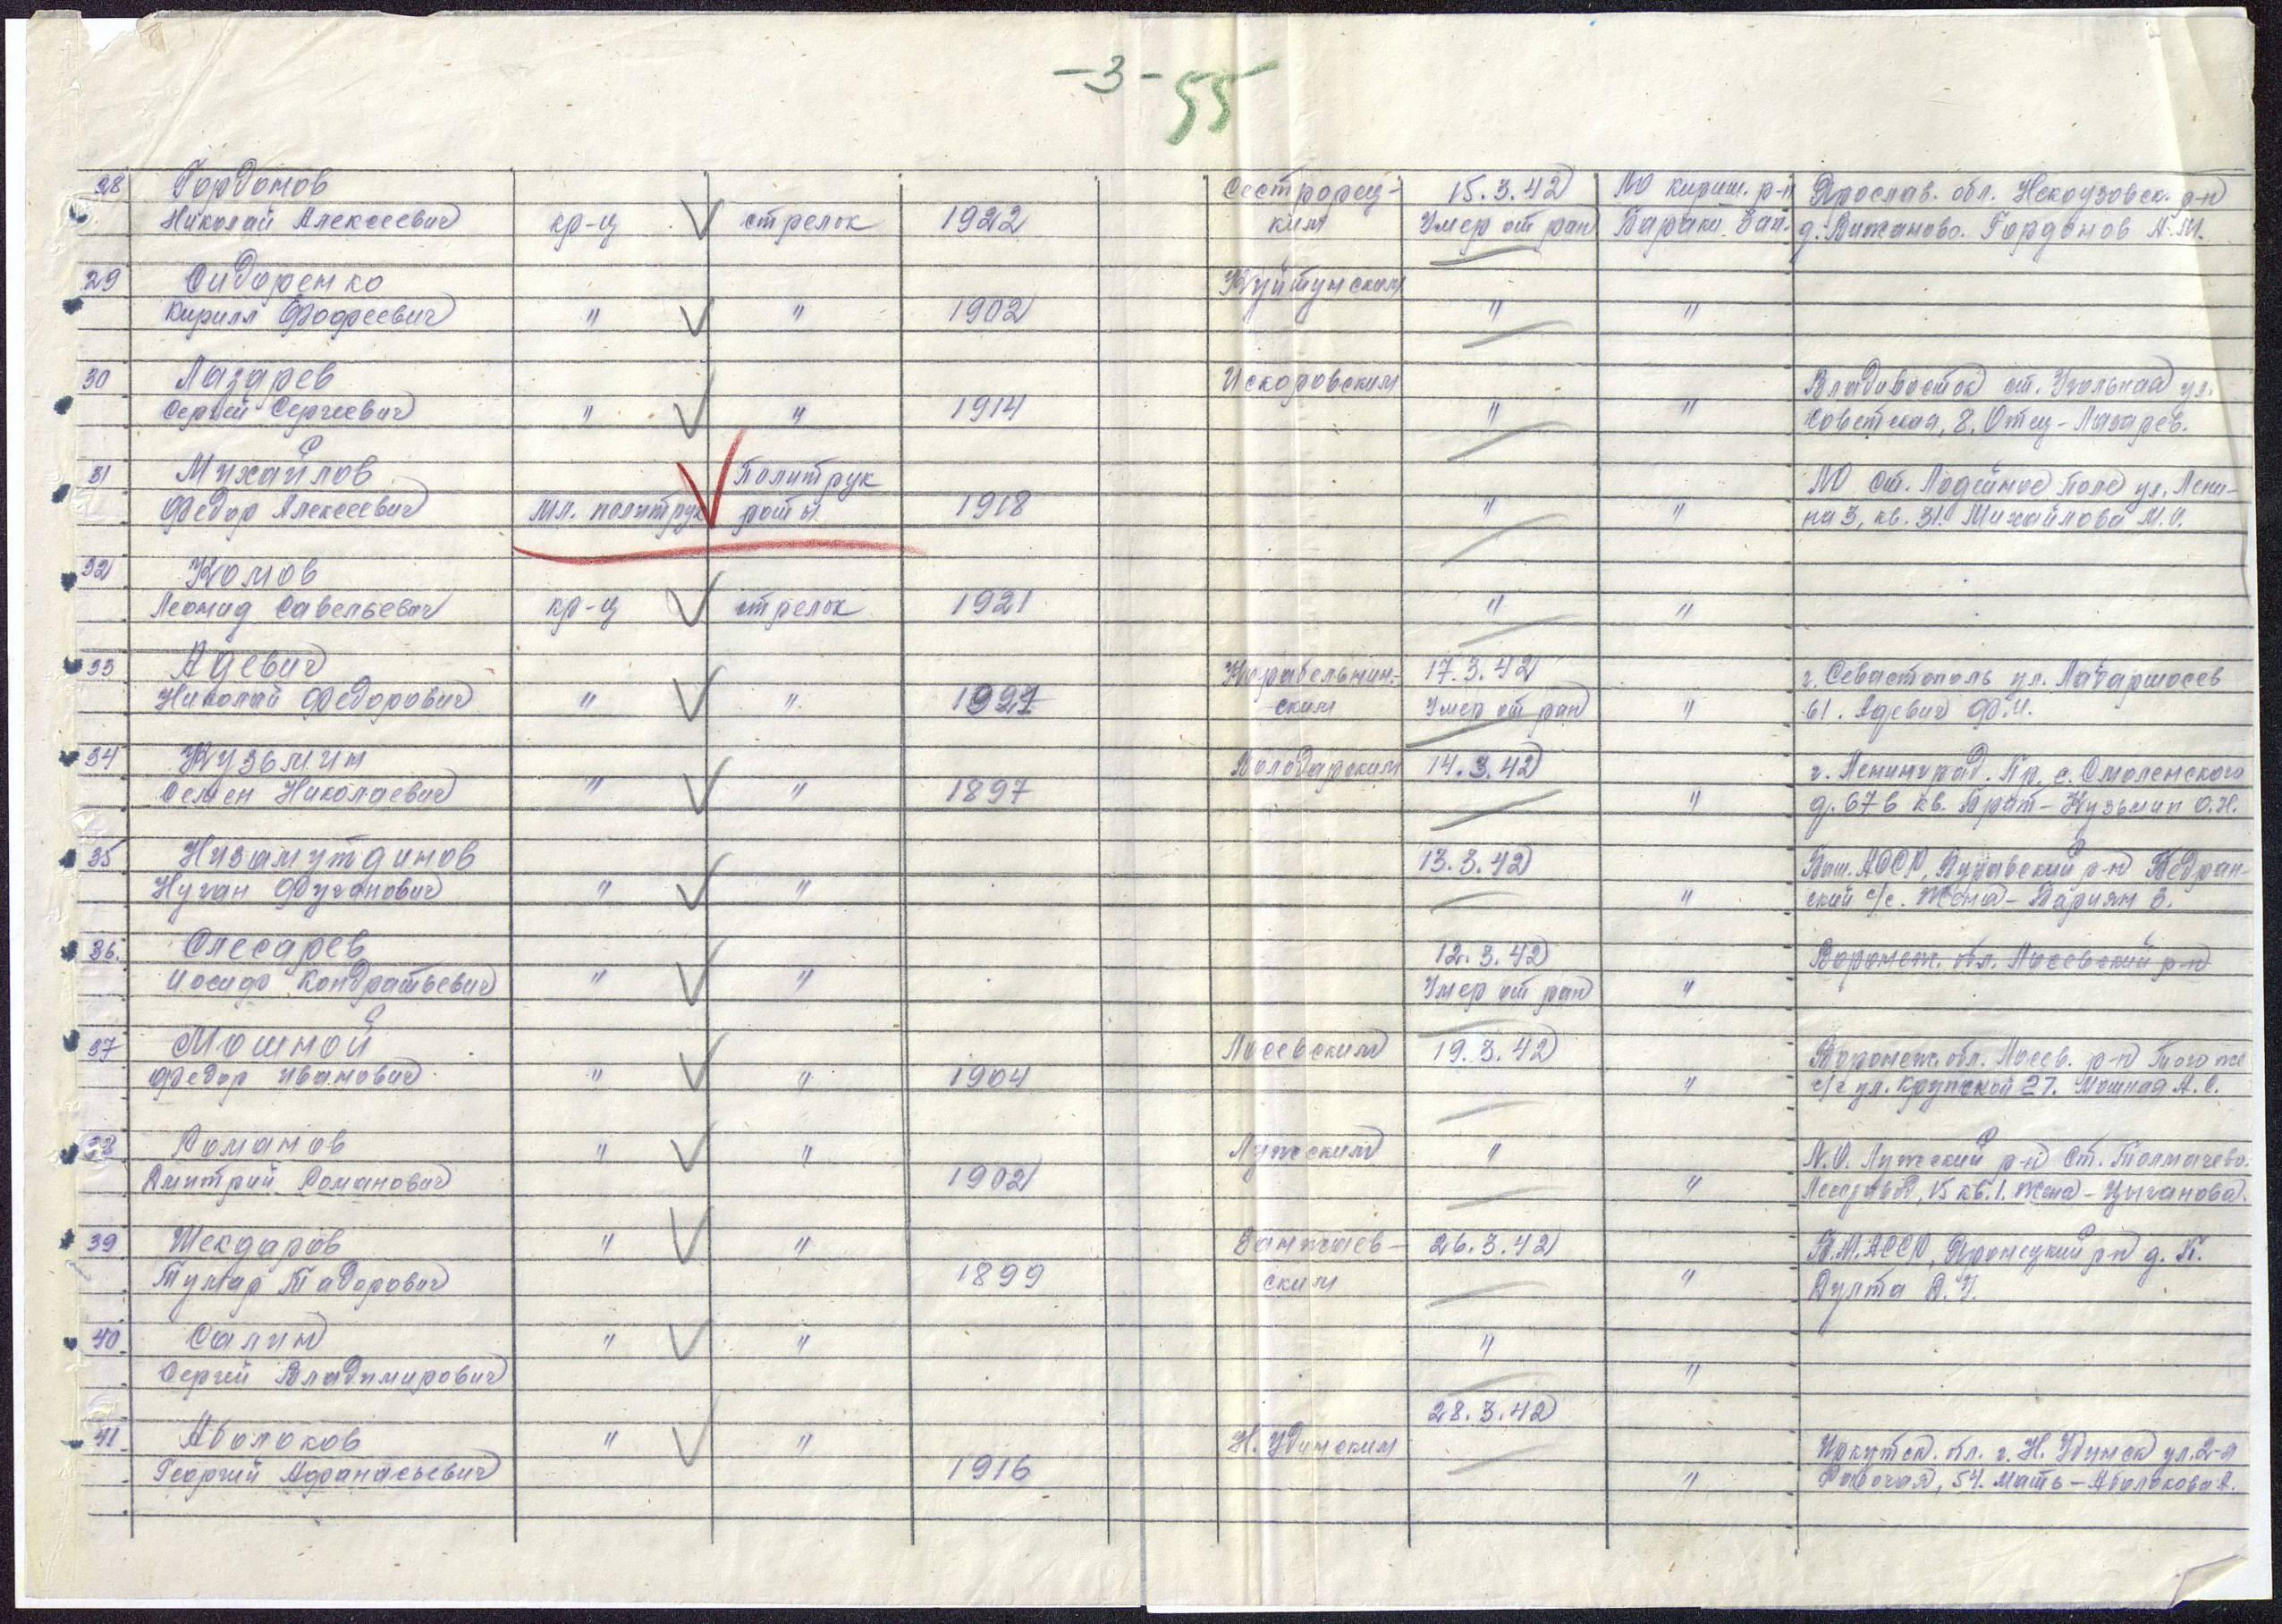 -3- 55
28 Гордонов Сестрорец- 15.3.42 ЛО кириш. р-н Ярослав. обл. Некоузовск. р-н
Николай Алексеевич кр-ц стрелок 1922 ким Умер от ран Бараки. Зап. д. Вижаново. Гордонов А.М.
29 Сидоренко Куйтунским
Кирилл Фофеевич " " 1902 " "
30 Лазарев Искоровским Владивосток ст. Угольная ул.
Сергей Сергеевич " " 1914 " " Советская, 8. Отец - Лазарев.
31 Михайлов Политрук ЛО ст. Лодейное поле ул. Лени-
Федор Алексеевич мл. политрук роты 1918 " " на 3, кв. 31. Михайлова М.О.
32 Комов
Леонид Савельевич кр-ц стрелок 1921 " "
33 Адевич Корабельнин- 17.3.42 г. Севастополь ул.
Николай Федорович " " 1921 ским Умер от ран " 61. Адевич Ф.И.
34 Кузьмин Володарским 14.3.42 г. Ленинград. Пр. с. Смоленского
Семен Николаевич " " 1897 " д. 67б кв. Брат - Кузьмин О.Н.
35 Низамутдинов 13.3.42 Баш. АССР, р-н Бедран-
Нуган Фуганович " " " ский с/с. Жена - Дариян З.
36. Слесарев 12.3.42 Воронеж. обл. Лосевский р-н
Иосиф Кондратьевич " " Умер от ран "
37 Мошной Лосевским 19.3.42 Воронеж. обл. Лосев. р-н того же
Федор Иванович " " 1904 " с/с ул. Крупской 27. Мошная А.С.
38 Романов " " Лужским " Л.О. Лужский р-н ст. Толмачево.
Дмитрий Романович 1902 " 15 кв. 1. Жена - Цыганова.
39 Шекдаров " " Занжаев- 26.3.42 Б.М.АССР, р-н д. К.
Тумар Тадорович 1899 ским " Дулта Д.У.
40. Салин " " "
Сергей Владимирович "
28.3.42
41. Аболоков " " Н. Удинским Иркутск. бл. г. Н. Удинск ул. 2-я
Георгий Афанасьевич 1916 " Рабочая, 54. Мать - Аболокова А.